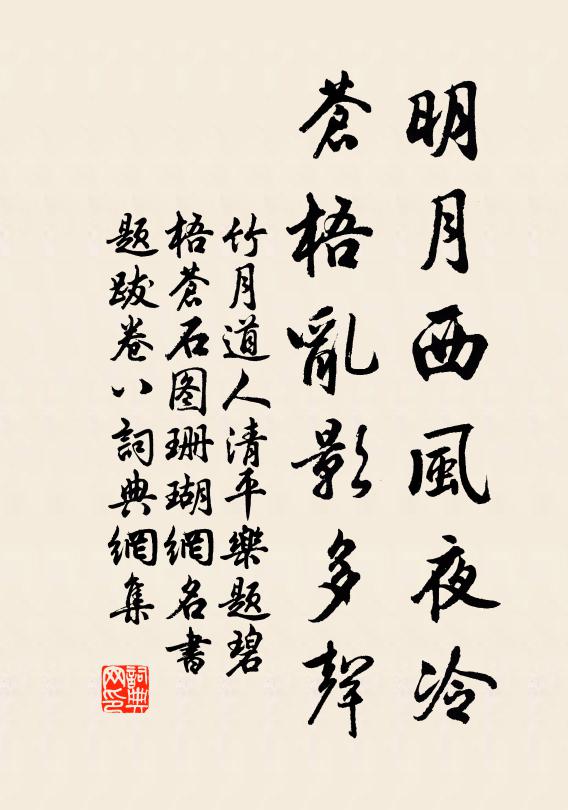 明月西風夜冷
蒼梧亂影多聲
竹月道人清平樂题碧
梧蒼石图珊瑚網名書
题跋卷八詞典網集
詞典
网印